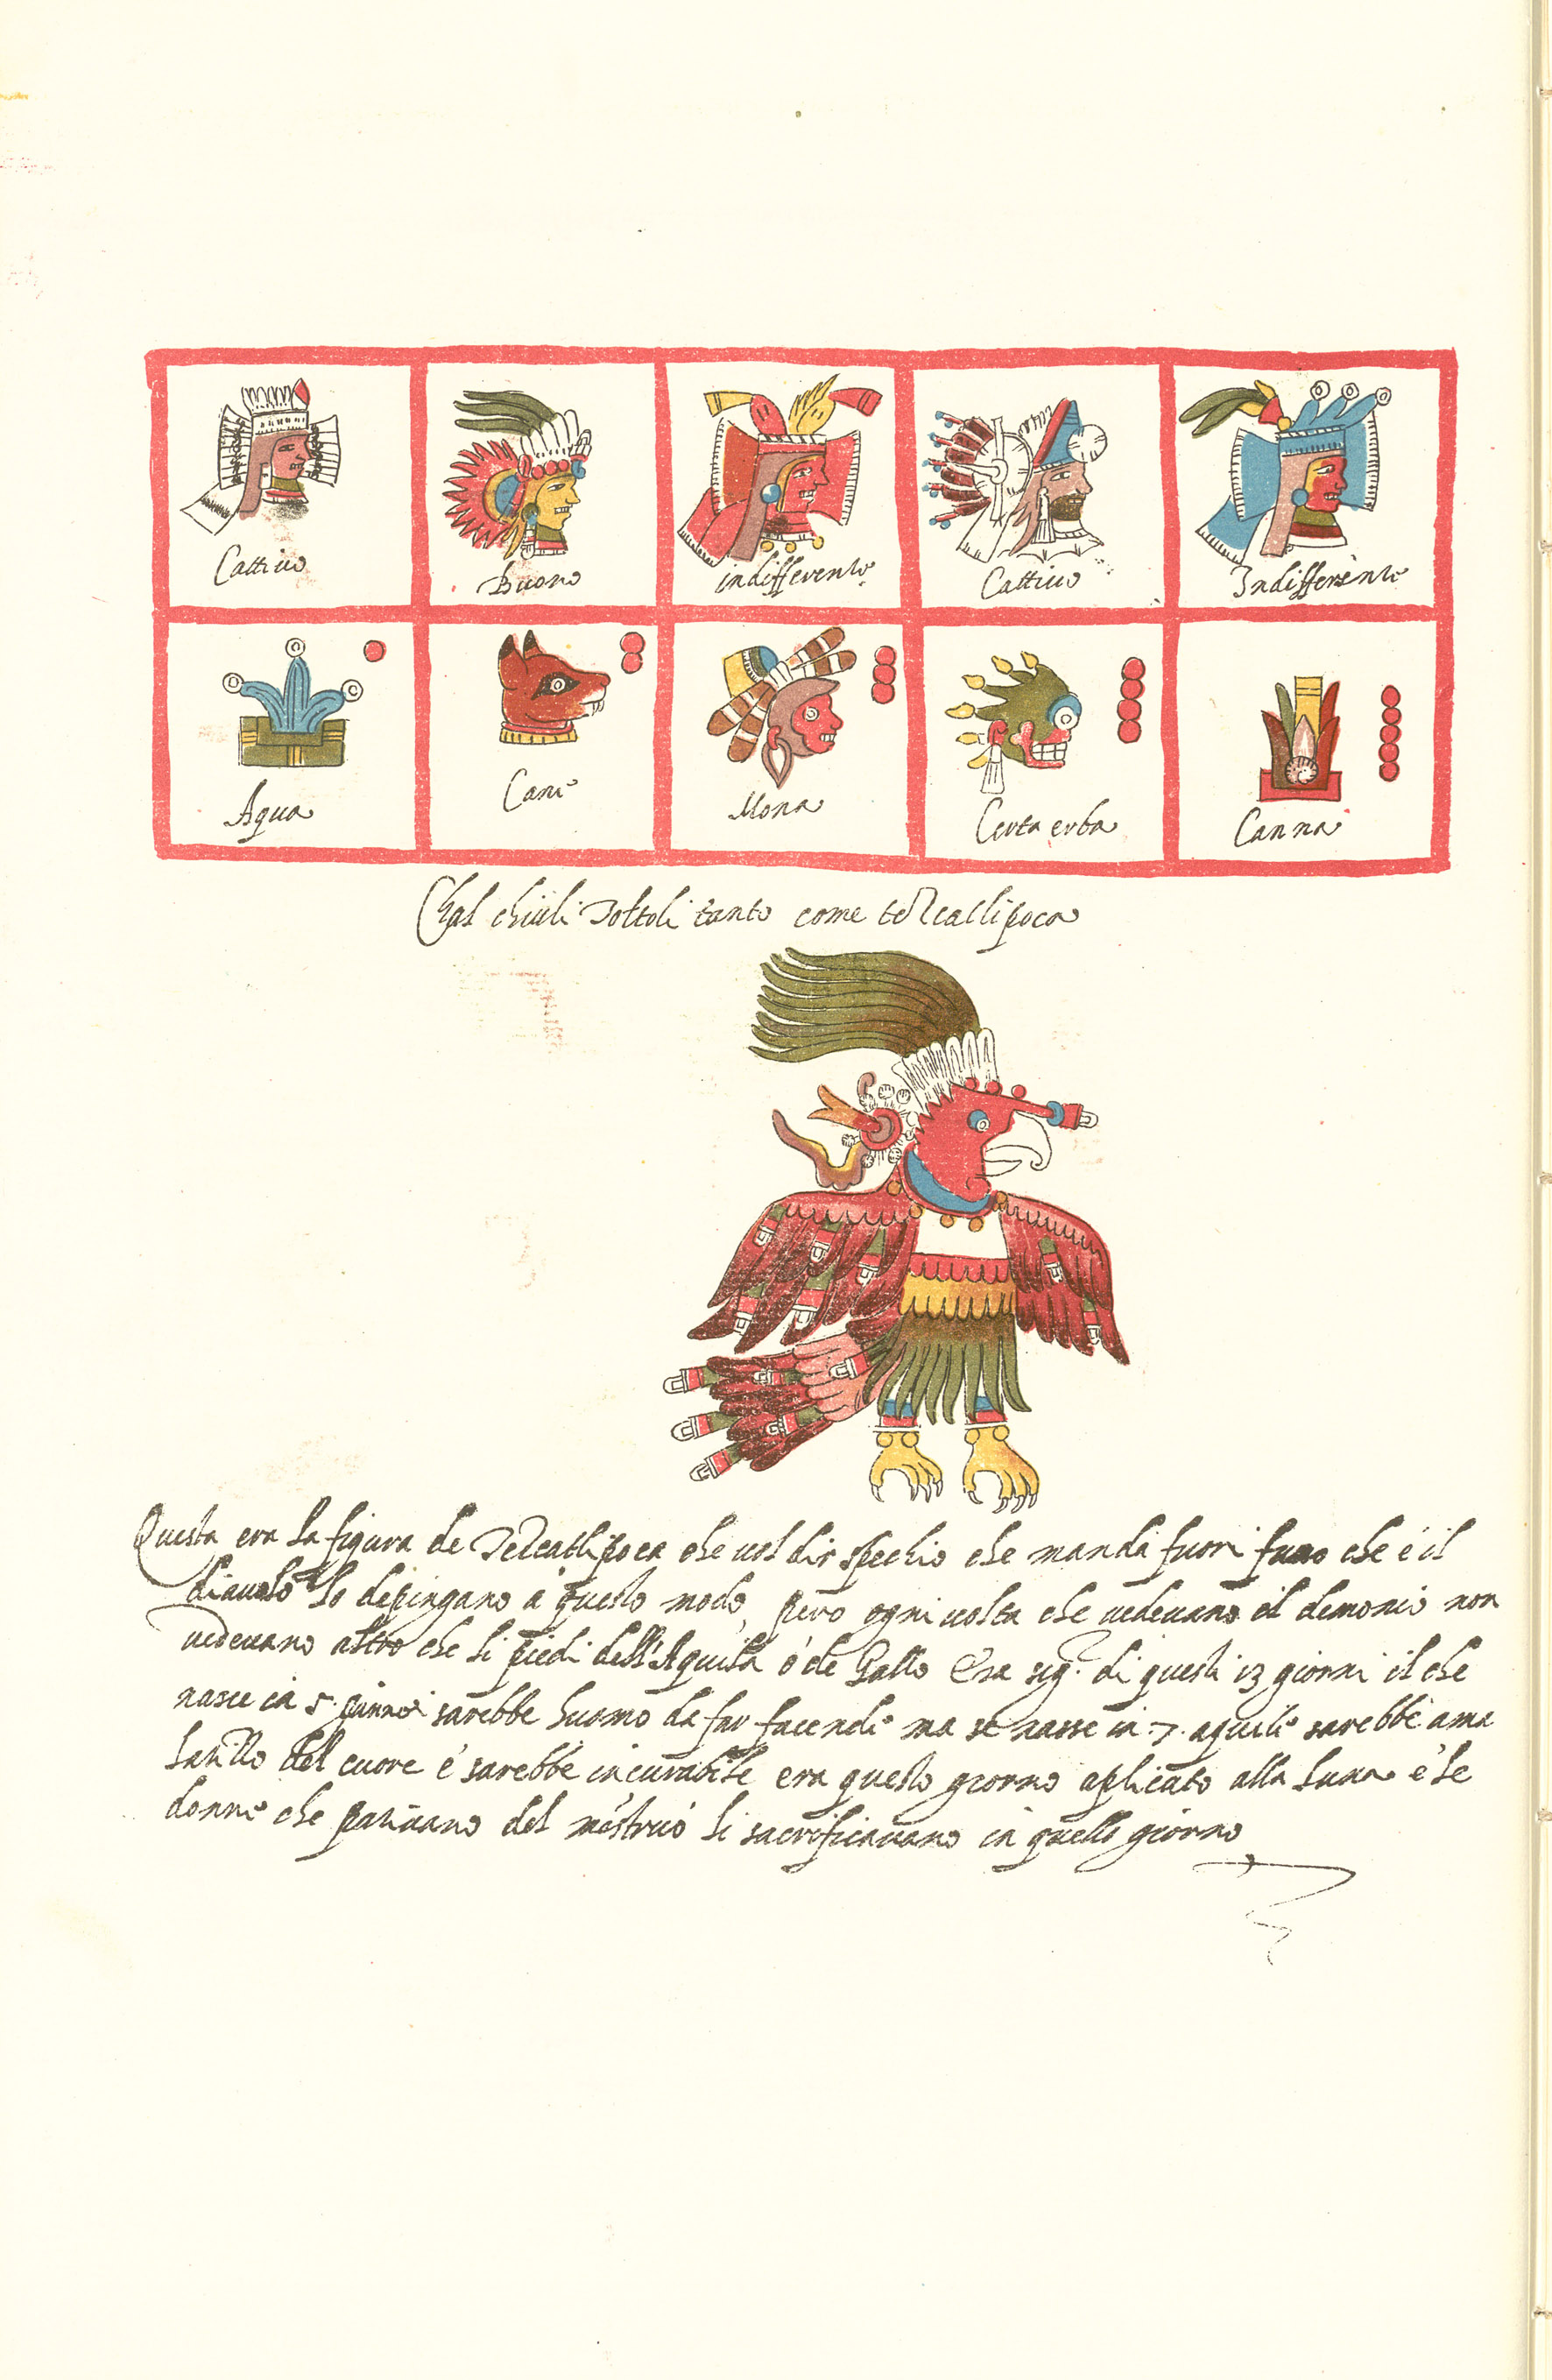 Cattiuo
Buono
indifferente
Cattiuo
Indifferente
Aqua
Cane
Mona
Certa erba
Canna
Chal chiuli Tottoli tanto come tezcatlipoca
Questa era la figura de Tezcatlipoca che uol dir spechio che manda fuori fumo che è il
diauolo lo depingano à questo modo, però ogni uolta che uedeuano il demonio non
uedeuano altro che li piedi dell'Aquila ò de Gallo Era sig.r di questi 13 giorni il che
nasce in 5. sarebbe huomo da far facende ma se nasse in .7. aquile sarebbe ama
latillo del cuore è sarebbe incurabile era questo giorno aplicato alla luna è le
donne che patiuano del mestruo li sacrificauano in quello giorno